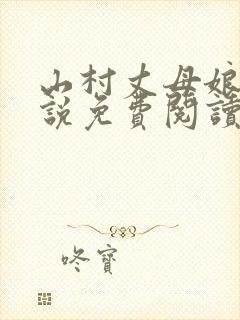 山村丈母娘
說免費閱讀
咚寶